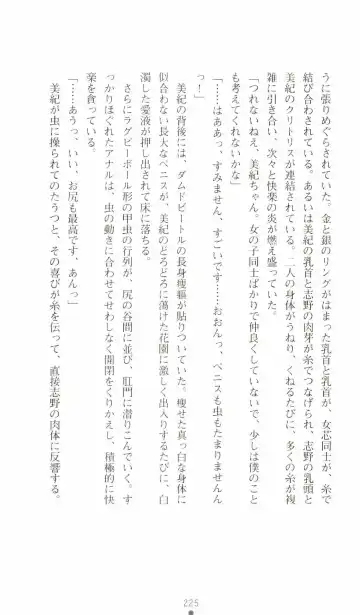 うに張りめぐらされていた。金と銀のリングがはまった乳首と乳首が、女芯同士が、糸で
結び合わされている。あるいは美紀の乳首と志野の肉芽が糸でつなげられ、志野の乳頭と
美紀のクリトリスが連結されている。二人の身体がうねり、くねるたびに、多くの糸が複
雑に引き合い、次々と快楽の炎が燃え盛っていた。
「つれないねえ、美紀ちゃん。女の子同士ばかりで仲良くしていないで、少しは僕のこと
も考えてくれないかな」
「……はああっ、すみません、すごいです……おおんっ、ペニスも虫もたまりませんん
っ！」
美紀の背後には、ダムドビートルの長身痩躯が貼りついていた。痩せた真っ白な身体に
似合わない長大なペニスが、美紀のどろどろに蕩けた花園に激しく出入りするたびに、白
濁した愛液が押し出されて床に落ちる。
さらにラグビーボール形の甲虫の行列が、尻の谷間に並び、肛門に潜りこんでいく。す
っかりほぐれたアナルは、虫の動きに合わせてせわしなく開閉をくりかえし、積極的に快
楽を貪っている。
「……あうっ、いい、お尻も最高です、あんっ」
美紀が虫に操られてのたうつと、その喜びが糸を伝って、直接志野の肉体に反響する。
225